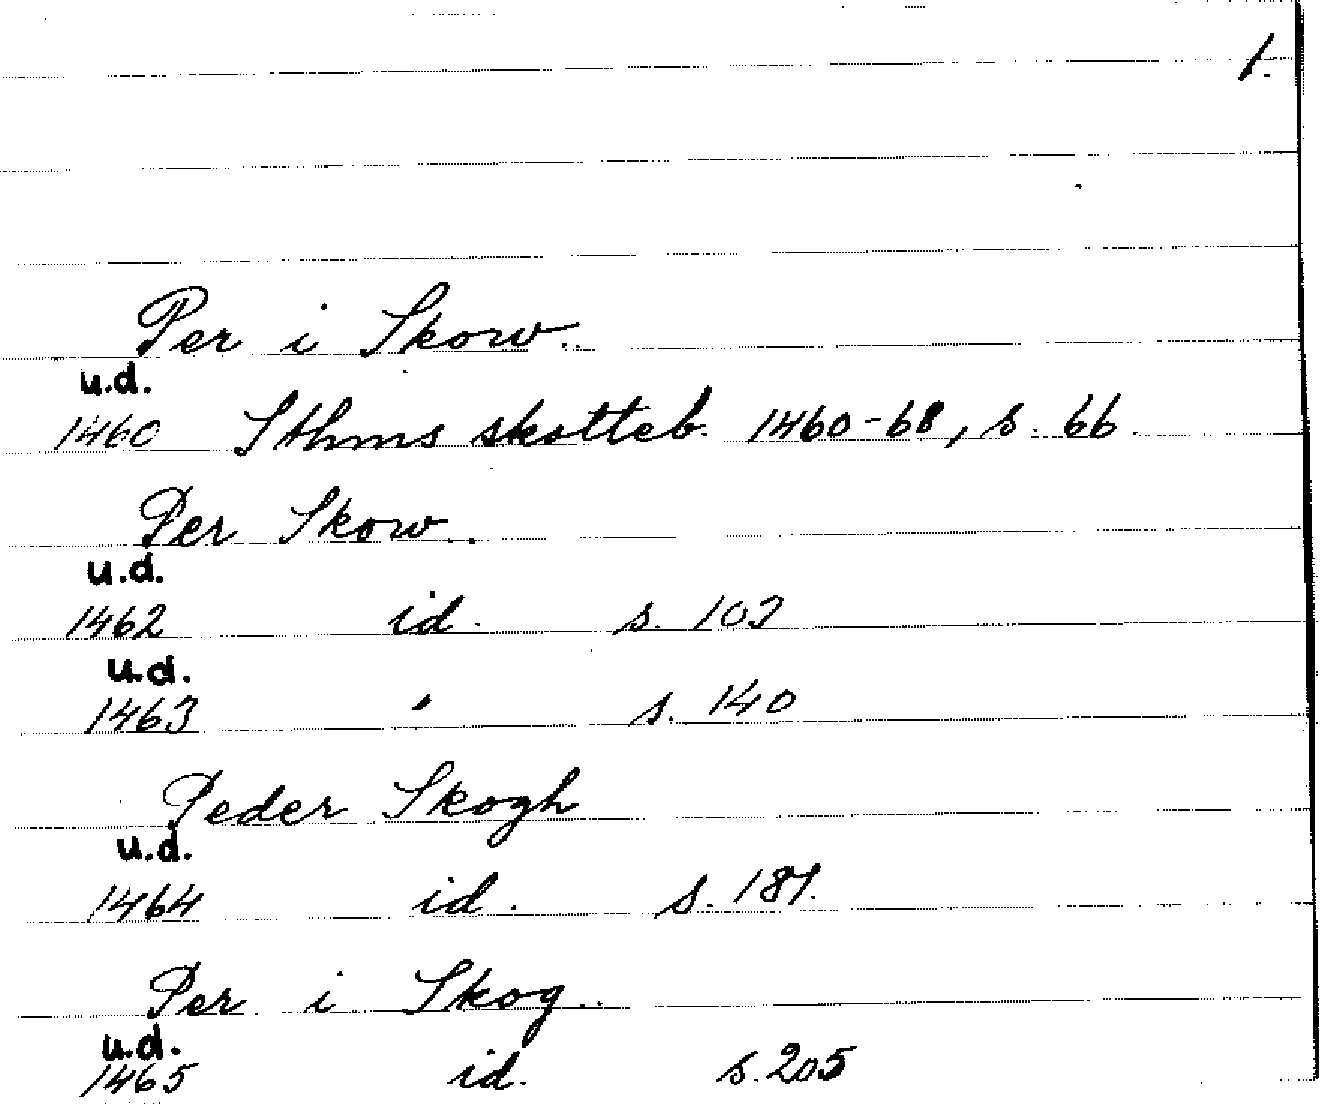 1.
Per i Skow.
u.d.
1460 Sthms skotteb. 1460-68, s. 66.
Per Skow.
u.d.
1462 id. s. 102
u.d.
1463 " s. 140
Peder Skogh
u.d.
1464 id. s. 181.
Per i Skog.
u.d.
1465 id. s. 205